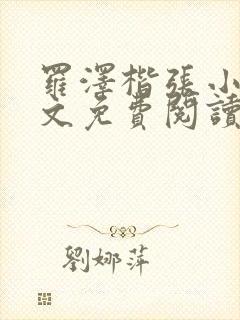 羅澤楷張小
文免費閱讀
劉娜萍